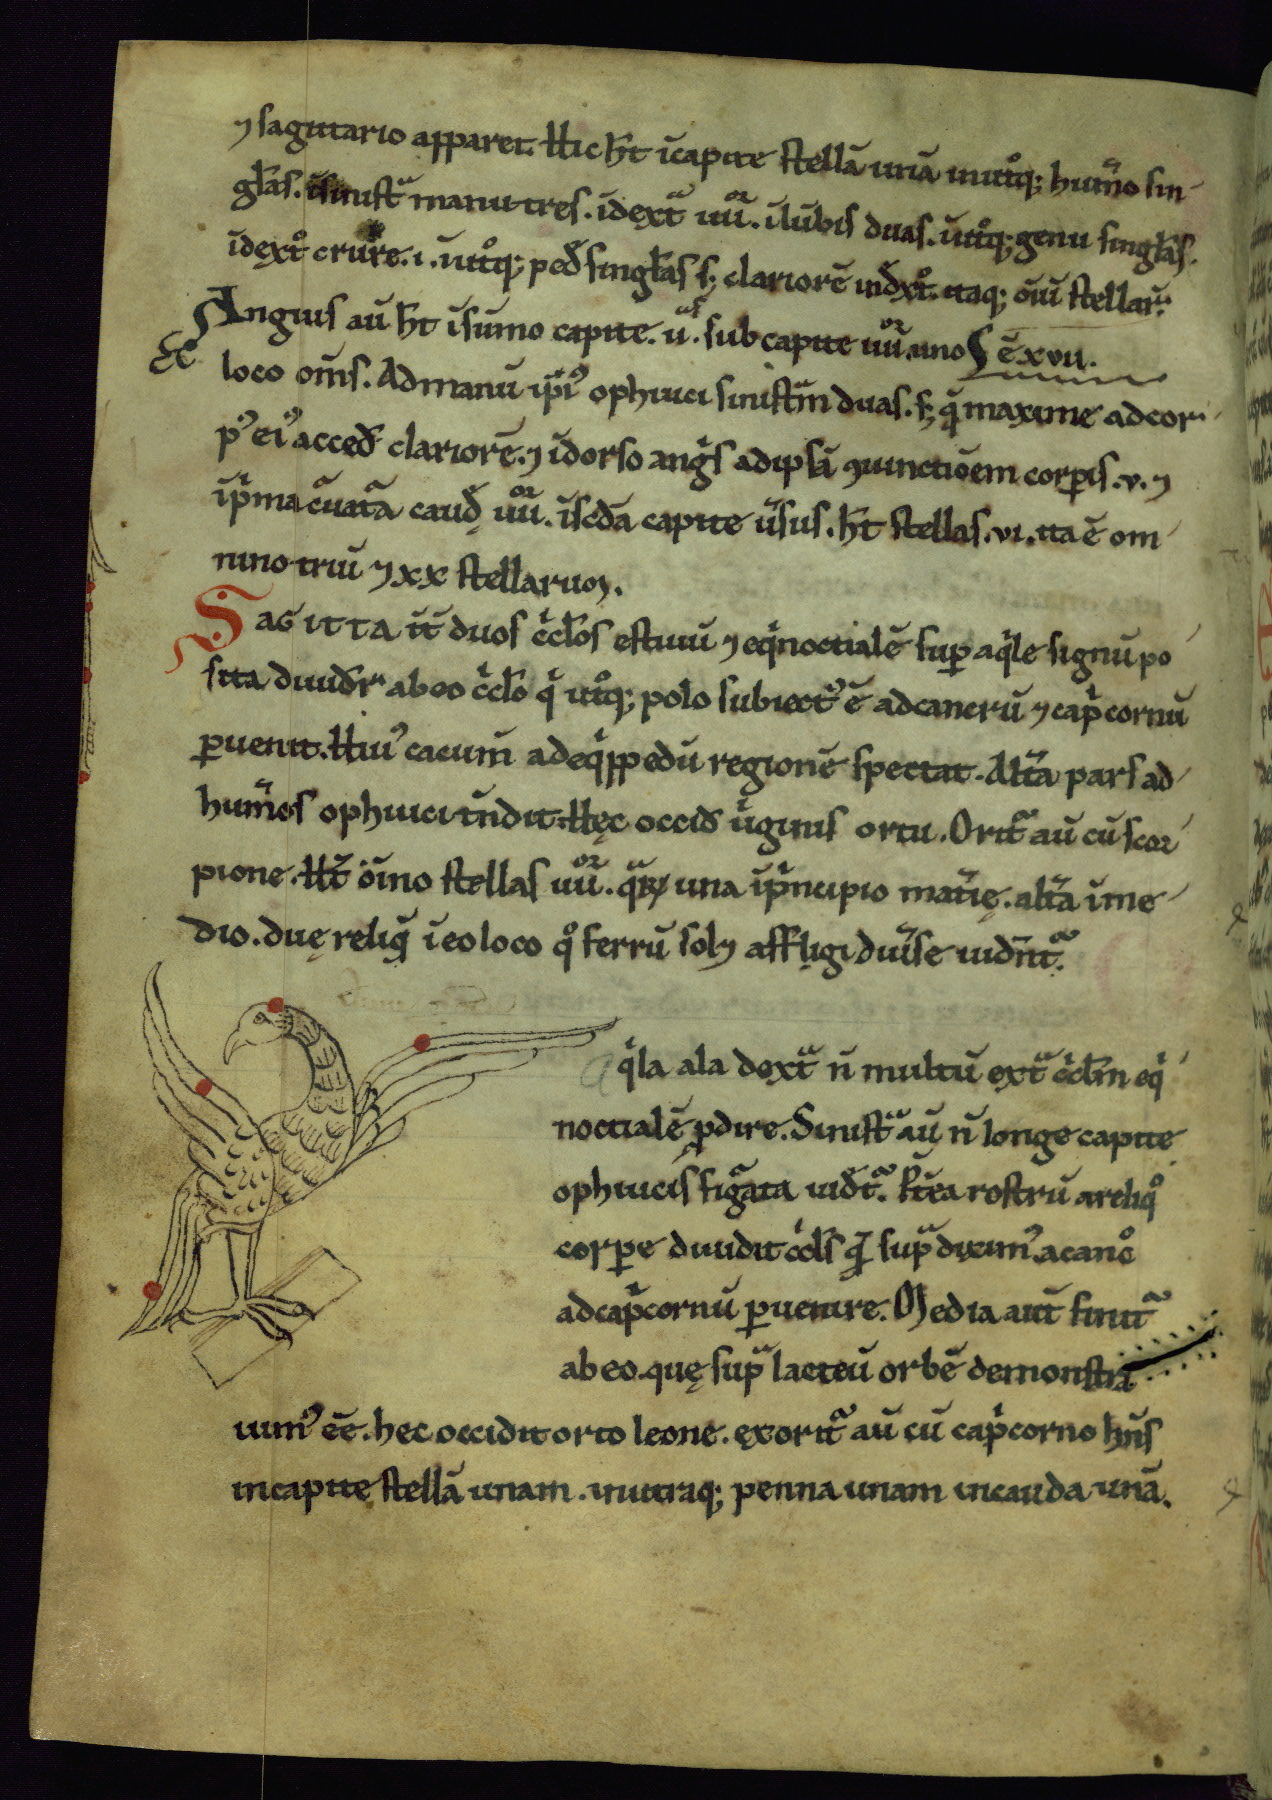 ⁊ sagittario apparet. Hic ht̄ ī capite stellā unā in utͦq; humͦo sin
gl̄as. ī sinistᷓ manu tres. ī dextᷓ iiii͛. ī lūbis duas. ī utͦq; genu singl̄as.
ī dextͦ crure .i. ī utͦq; ped̄ singl̄as s; clariorē in dxͦt. itaq; oīū stellarͧ
Anguis aū ht̄ ī sūmo capite .ii. sub capite iiii͛ uno ē xvii.
loco om̄s. Ad manū ip̄iꝰ ophiuci sinistᷓm duas. s; qͣ maxime ad cor
pꝰ eiꝰ acced̄ clariorē. ⁊ ī dorso angͥs ad ipsā ꝯiunctiōem corꝑis .v. ⁊
ī pͥma cͥuatᷓa caud̄ę iiii͛. ī scd̄a capite uͥsus. ht̄ stellas .vi. ita ē om
nino triū ⁊ xx stellarum.
SAGITTA īt̄ duos cͥcl̄os estiuū ⁊ eqͥnoctialē suꝑ aqͥle signū po
sita diuid̄rͬ ab eo cͥcl̄o qͥ utͦq; polo subiectꝰ ē ad cancrū ⁊ capͥcornū
ꝑuenit. Huiꝰ cacum̄ ad eqͥppedū regionē spectat. Alt̄a pars ad
hum̄os ophiuci tn̄dit. Hęc occid̄ uͥginis ortu. Oritᷓ aū cū scor
pione. Ht̄ oīno stellas iiii͛. qͣꝝ una ī pͥncipio mat̄ię. alt̄a ī me
dio. duę reliqͣ ī eo loco qͦ ferrū sol⁊ affligi diuīse uidn̄tᷓ.
qͥla ala dextᷓ n̄ multū extᷓ cͥcl̄m eqͥ
noctialē ꝓdire. Sinistᷓ aū n̄ longe capite
ophiucis figͣata uid̄tᷓ. Pt̄ea rostrū a reliqͦ
corꝑe diuidit cͥcl̄s qͥ supᷓ diximꝰ a cancͦ
ad capͥcornū ꝑuenire. Media aut̄ finitᷓ
ab eo. quę supᷓ lacteū orbē demonstra
uimꝰ eē. hec occidit orto leone. exoritᷓ aū cū capͥcorno hn̄s
in capite stellā unam. in utraq; penna unam in cauda unā.